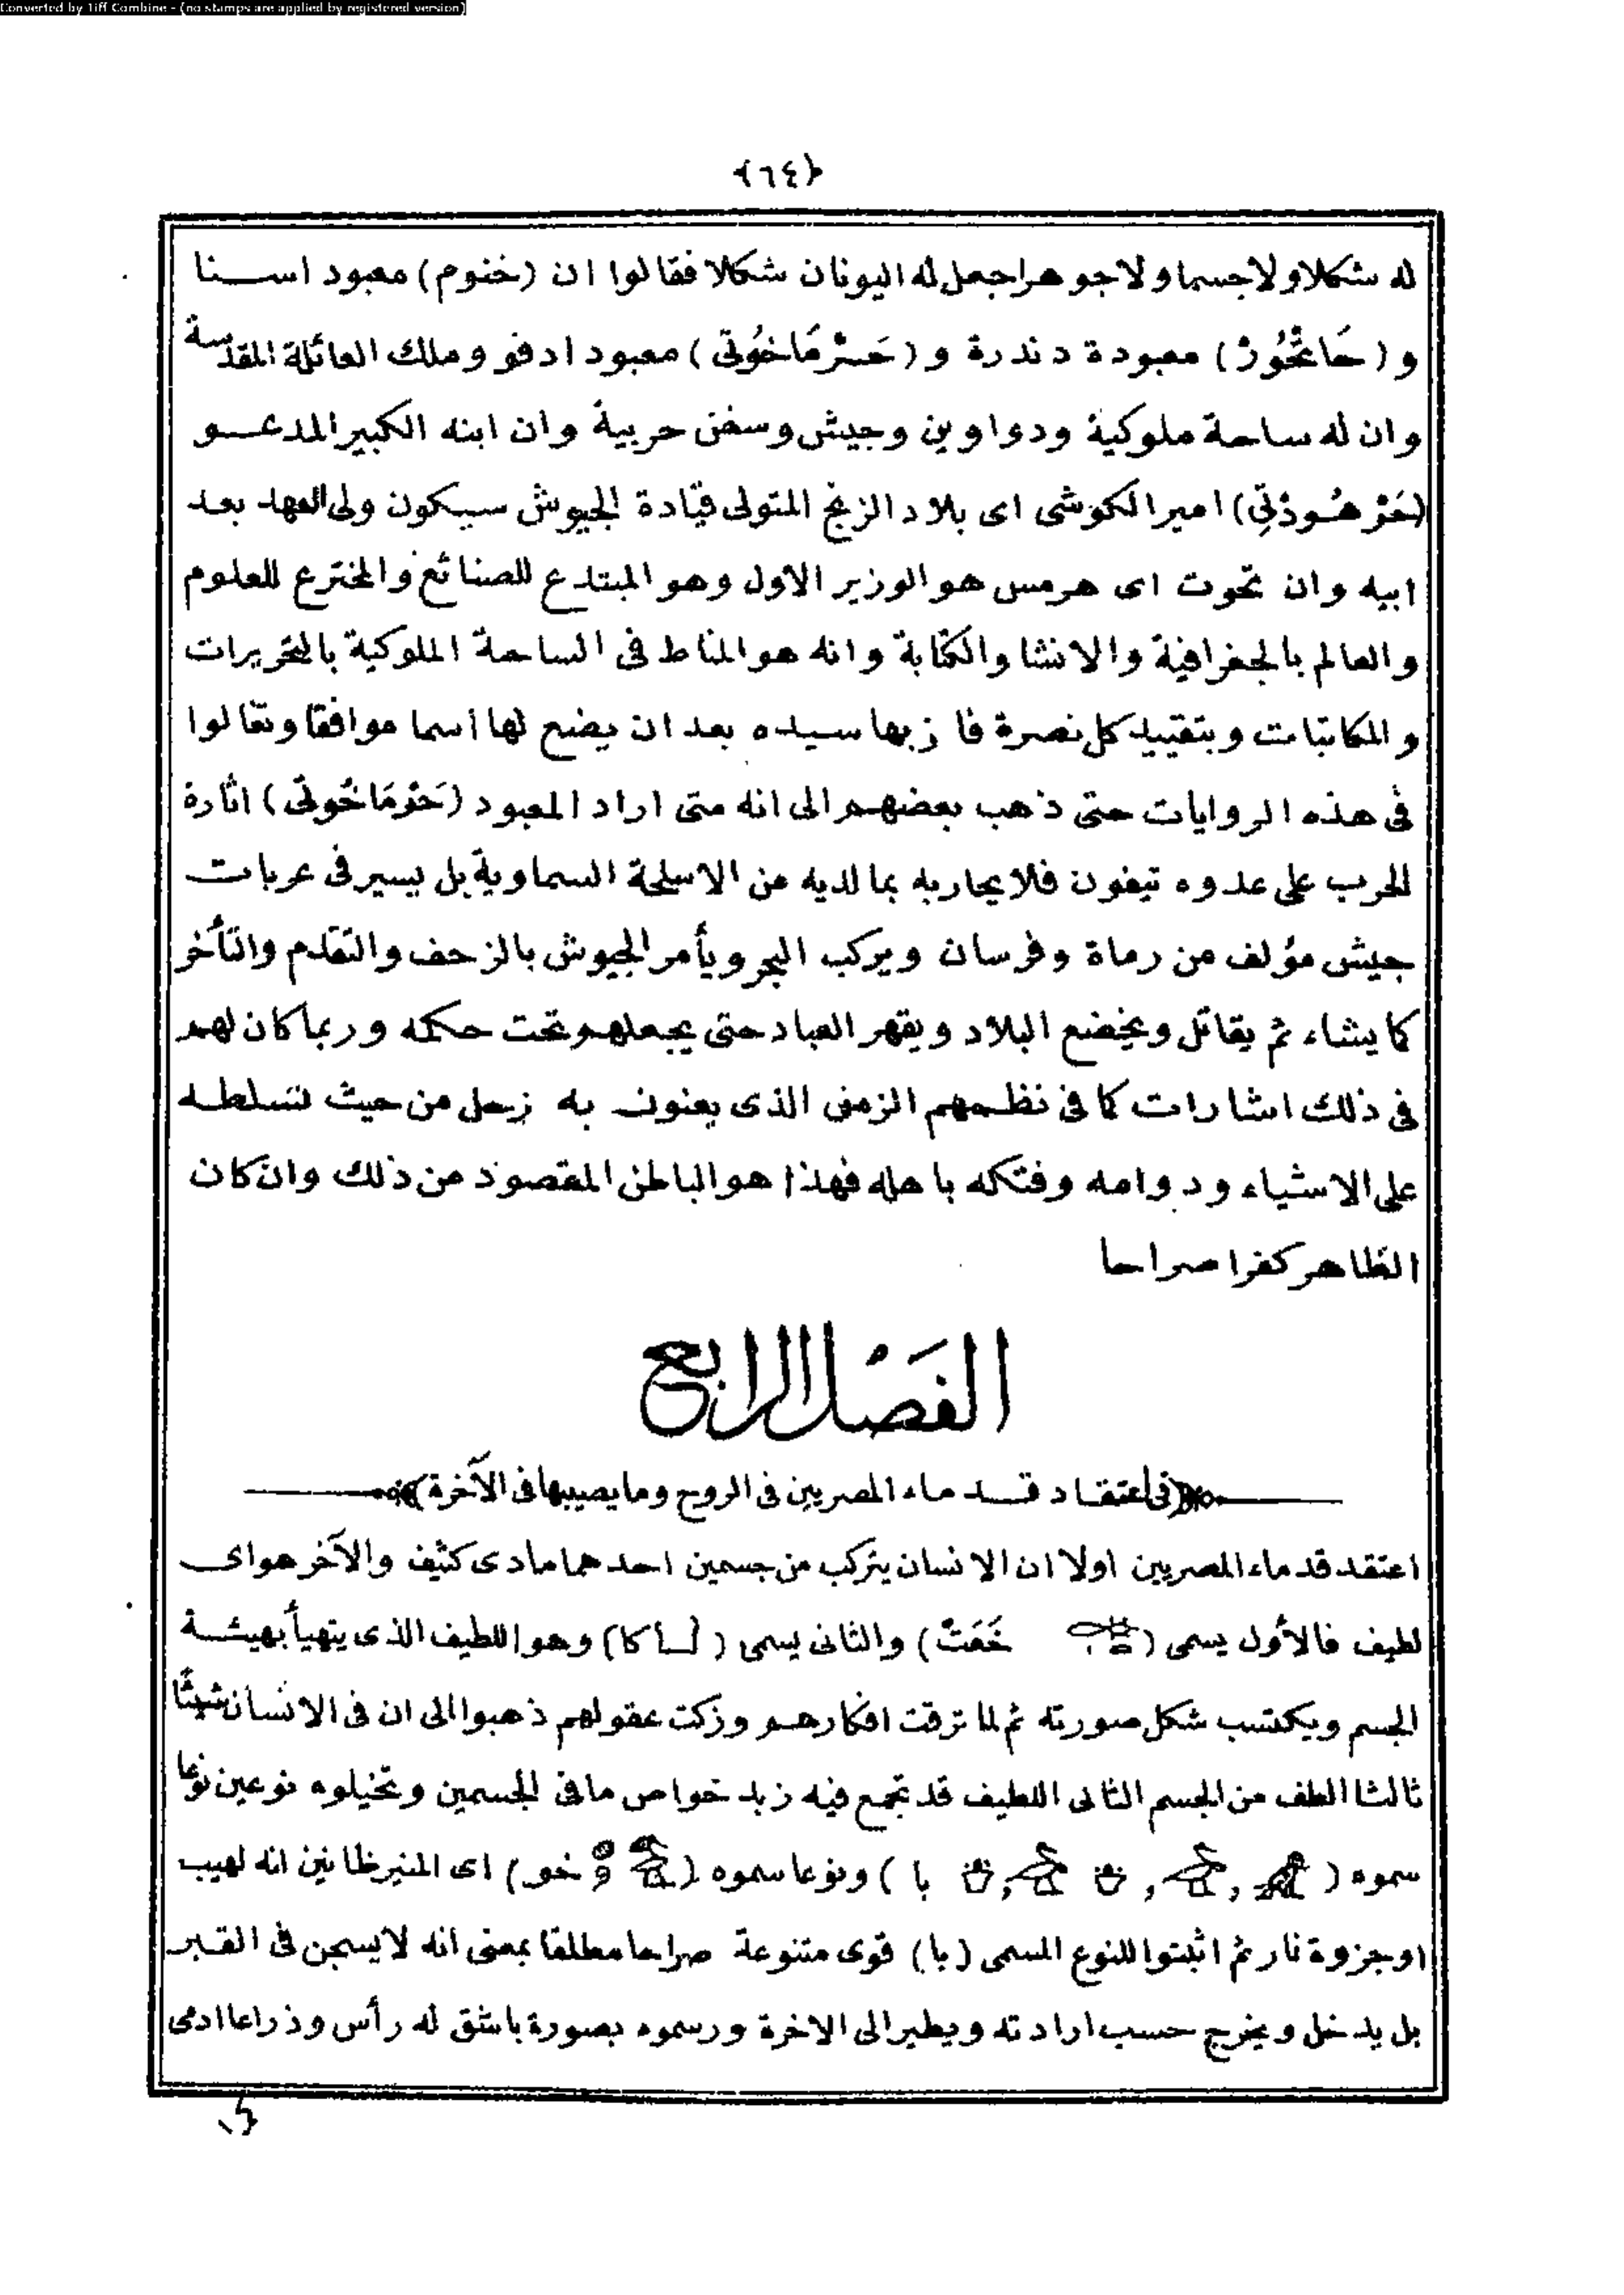 Converted by Tiff Combine - (no stamps are applied by registered version)
﴿٦٤﴾
له شكلا ولا جسما ولا جوهرا جعل له اليونان شكلا فقالوا ان (خنوم) معبود اسنا
و (حَاتْحُورْ) معبودة دندرة و (حَرْمَاخُوتى) معبود ادفو وملك العائلة المقدسة
وان له ساحة ملوكية ودواوين وجيش وسفن حربية وان ابنه الكبير المدعو
(حَرْهُودْتِى) امير الكوشى اى بلاد الزنج المتولى قيادة الجيوش سيكون ولى العهد بعد
ابيه وان تحوت اى هرمس هو الوزير الاول وهو المبتدع للصنائع والمخترع للعلوم
والعالم بالجغرافية والانشا والكتابة وانه هو المناط فى الساحة الملوكية بالتحريرات
والمكاتبات وبتقييد كل نصرة فاز بها سيده بعد ان يضع لها اسما موافقا وتغالوا
فى هذه الروايات حتى ذهب بعضهم الى انه متى اراد المعبود (حَرْمَاخُوتى) اثارة
الحرب على عدوه تيفون فلا يحاربه بما لديه من الاسلحة السماوية بل يسير فى عربات
جيش مؤلف من رماة وفرسان ويركب البحر ويأمر الجيوش بالزحف والتقدم والتأخر
كما يشاء ثم يقاتل ويخضع البلاد ويقهر العباد حتى يجعلهم تحت حكمه وربما كان لهم
فى ذلك اشارات كما فى نظمهم الزمنى الذى يعنون به زحل من حيث تسلطه
على الاشياء ودوامه وفتكه باهله فهذا هو الباطن المقصود من ذلك وان كان
الظاهر كفرا صراحا
الفَصْل الرابع
﴿فى اعتقاد قدماء المصريين فى الروح وما يصيبها فى الآخرة﴾
اعتقد قدماء المصريين اولا ان الانسان يتركب من جسمين احدهما مادى كثيف والآخر هواى
لطيف فالأول يسمى ( خَمَتْ) والثانى يسمى ( كا) وهو اللطيف الذى يتهيأ بهيئة
الجسم ويكتسب شكل صورته ثم لما ترقت افكارهم وزكت عقولهم ذهبوا الى ان فى الانسان شيئًا
ثالثا الطف من الجسم الثانى اللطيف قد تجمع فيه زبد خواص ما فى الجسمين وتخيلوه نوعين نوعا
سموه ( با ) ونوعا سموه ( خو) اى المنير ظانين انه لهيب
اوجزوة نار ثم اثبتوا للنوع المسمى (با) قوى متنوعة صراحا مطلقا بمعنى انه لا يسجن فى القبر
بل يدخل ويخرج حسب ارادته ويطير الى الاخرة ورسموه بصورة باشق له رأس وذراعا ادمى